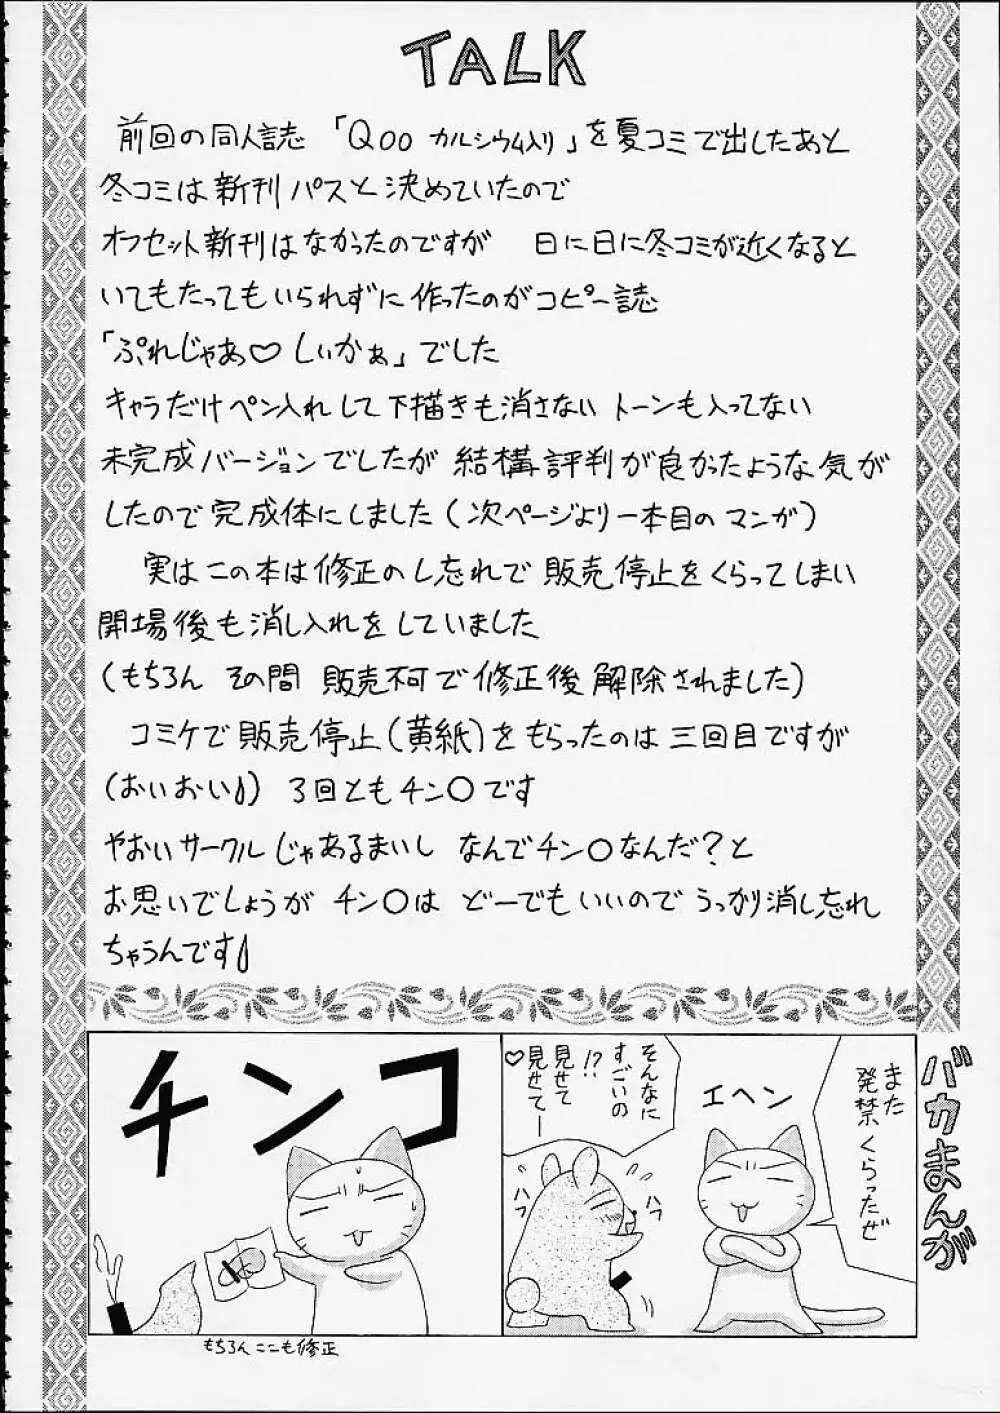 TALK
前回の同人誌 「Qoo カルシウム入り」を夏コミで出したあと
冬コミは新刊パスと決めていたので
オフセット新刊はなかったのですが 日に日に冬コミが近くなると
いてもたってもいられずに作ったのがコピー誌
「ぷれじゃあ♡しぃかぁ」でした
キャラだけペン入れして下描きも消さない トーンも入ってない
未完成バージョンでしたが 結構評判が良かったような気が
したので完成体にしました(次ページより一本目のマンガ)
実はこの本は修正のし忘れで販売停止をくらってしまい
開場後も消し入れをしていました
(もちろん その間 販売不可で修正後解除されました)
コミケで販売停止(黄紙)をもらったのは三回目ですが
(おいおい) 3回ともチン〇です
やおいサークルじゃあるまいし なんでチン〇なんだ?と
お思いでしょうが チン〇は どーでもいいので うっかり消し忘れ
ちゃうんです
バカまんが
また
発禁くらったぜ
エヘン
そんなに
すごいの
!?
見せて
見せてー
♡
ハァ
ハァ
チンコ
もちろんここも修正